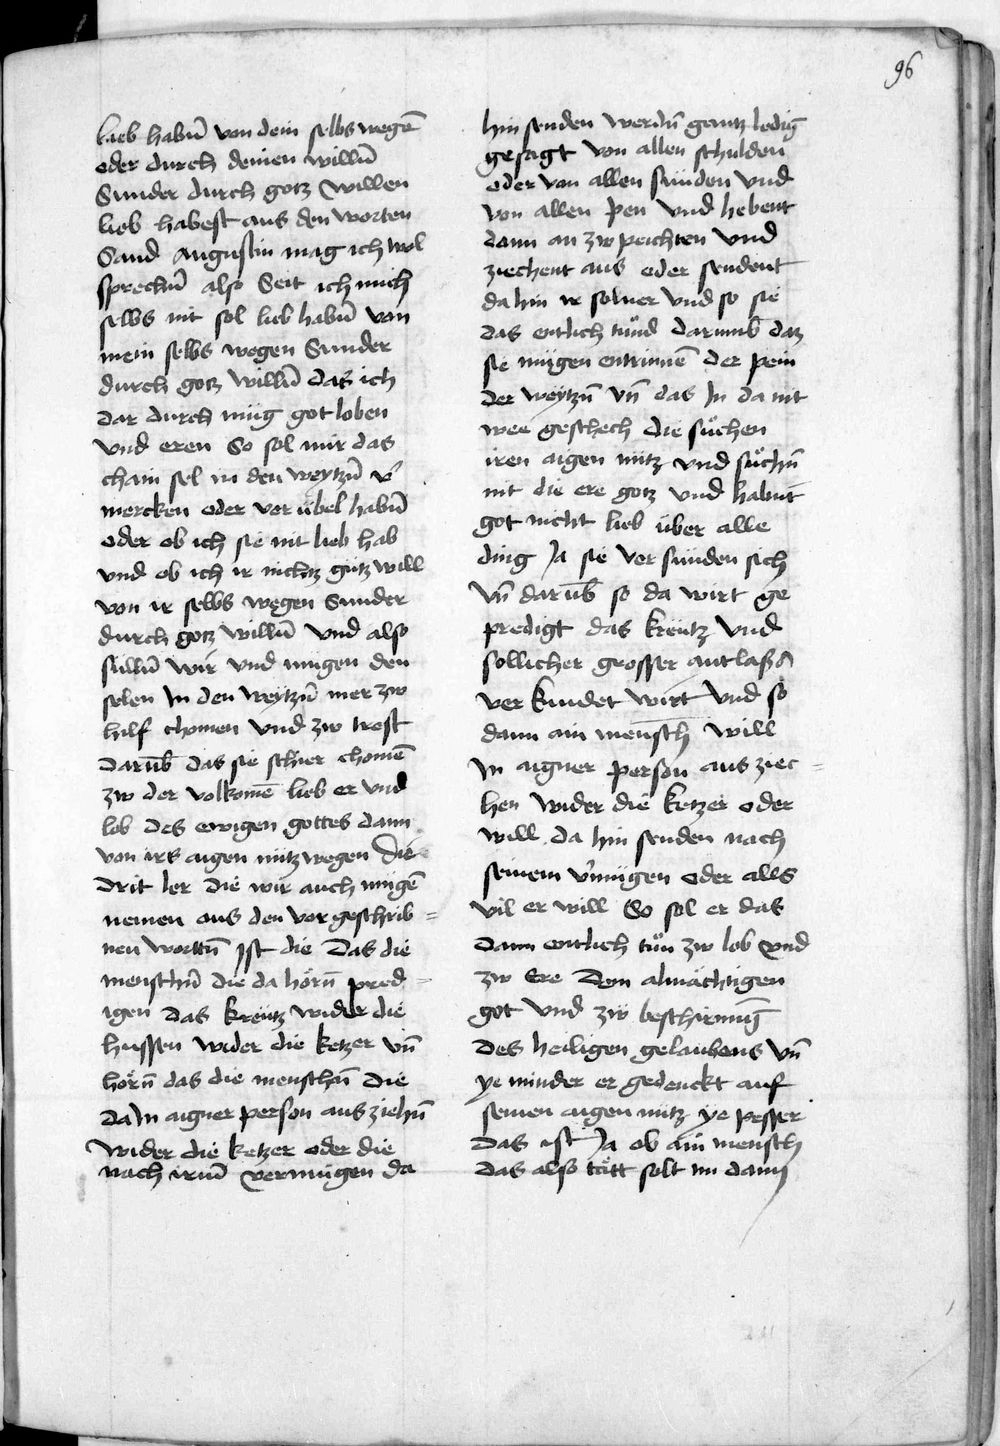 96
lieb habn̄ von dein selbs wegē
oder durch deinen willn̄
Sunder durch gotz willen
lieb habest aus den worten
Sand Augustin mag ich wol
sprechn̄ also Seit ich mich
selbs nit sol lieb habn̄ von
mein selbs wegen Sunder
durch gotz willn̄ das ich
dar durch müg got loben
vnd eren So sol mir das
chain sel in den weytzn̄ v̄
mercken oder vor übel habn̄
oder ob ich sie nit lieb hab
vnd ob ich ir nichtz gutz will
von ir selbs wegen Sunder
durch gotz willn̄ vnd also
sülln̄ wir vnd mügen den
selen In den weytzn̄ mer zw
hilf chomen vnd zw trost
darūb das sie schier chomē
zw der volkomē lieb er vnd
lob des ewigen gottes dann
von irs aigen nütz wegen Die
drit ler die wir auch mügē
nemen aus den vor geschrib=
nen wortn̄ Ist die Das die
menschn̄ die da hörn̄ pred=
igen das kreutz wider die
hussen wider die ketzer vn̄
hörn̄ das die menschn̄ die
da In aigner person aus ziehn̄
wider die ketzer oder die
nach irm̄ vermügen da
hin senden werdn̄ gantz ledig
gesagt von allen schulden
oder von allen sünden vnd
von allen pen vnd hebent
dann an zw peichten vnd
ziechent aus oder sendent
da hin ir solner vnd so sie
das entlich tünd darumb daz
sie mügen entrinnē der pein
der weytzn̄ vn̄ das In da nit
wee geschech die süchen
iren aigen nütz vnd süchn̄
nit die ere gotz vnd habnt
got nicht lieb über alle
ding Ja sie ver sünden sich
vn̄ darūb so da wirt ge
predigt das kreutz vnd
sollicher grosser antlaß
ver kündet wirt vnd so
dann ain mensch will
In aigner person aus ziec=
hen wider die ketzer oder
will da hin senden nach
seinem v̄mügen oder alls
vil er will So sol er das
dann entlich tün zw lob vnd
zw Ere Dem almächtigen
got vnd zw beschirmūg
des heiligen gelaubens vn̄
ye minder er gedenckt auf
seinen aigen nütz ye pesser
das ist Ja ob ain mensch
das also tätt solt im dann